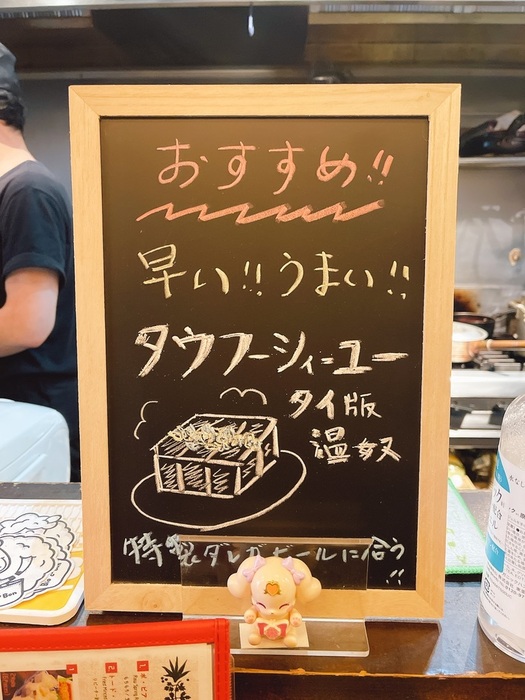 おすすめ!!
早い!!うまい!!
タウフーシィーユー
タイ版
温奴
特製ダレがビールに合う!!